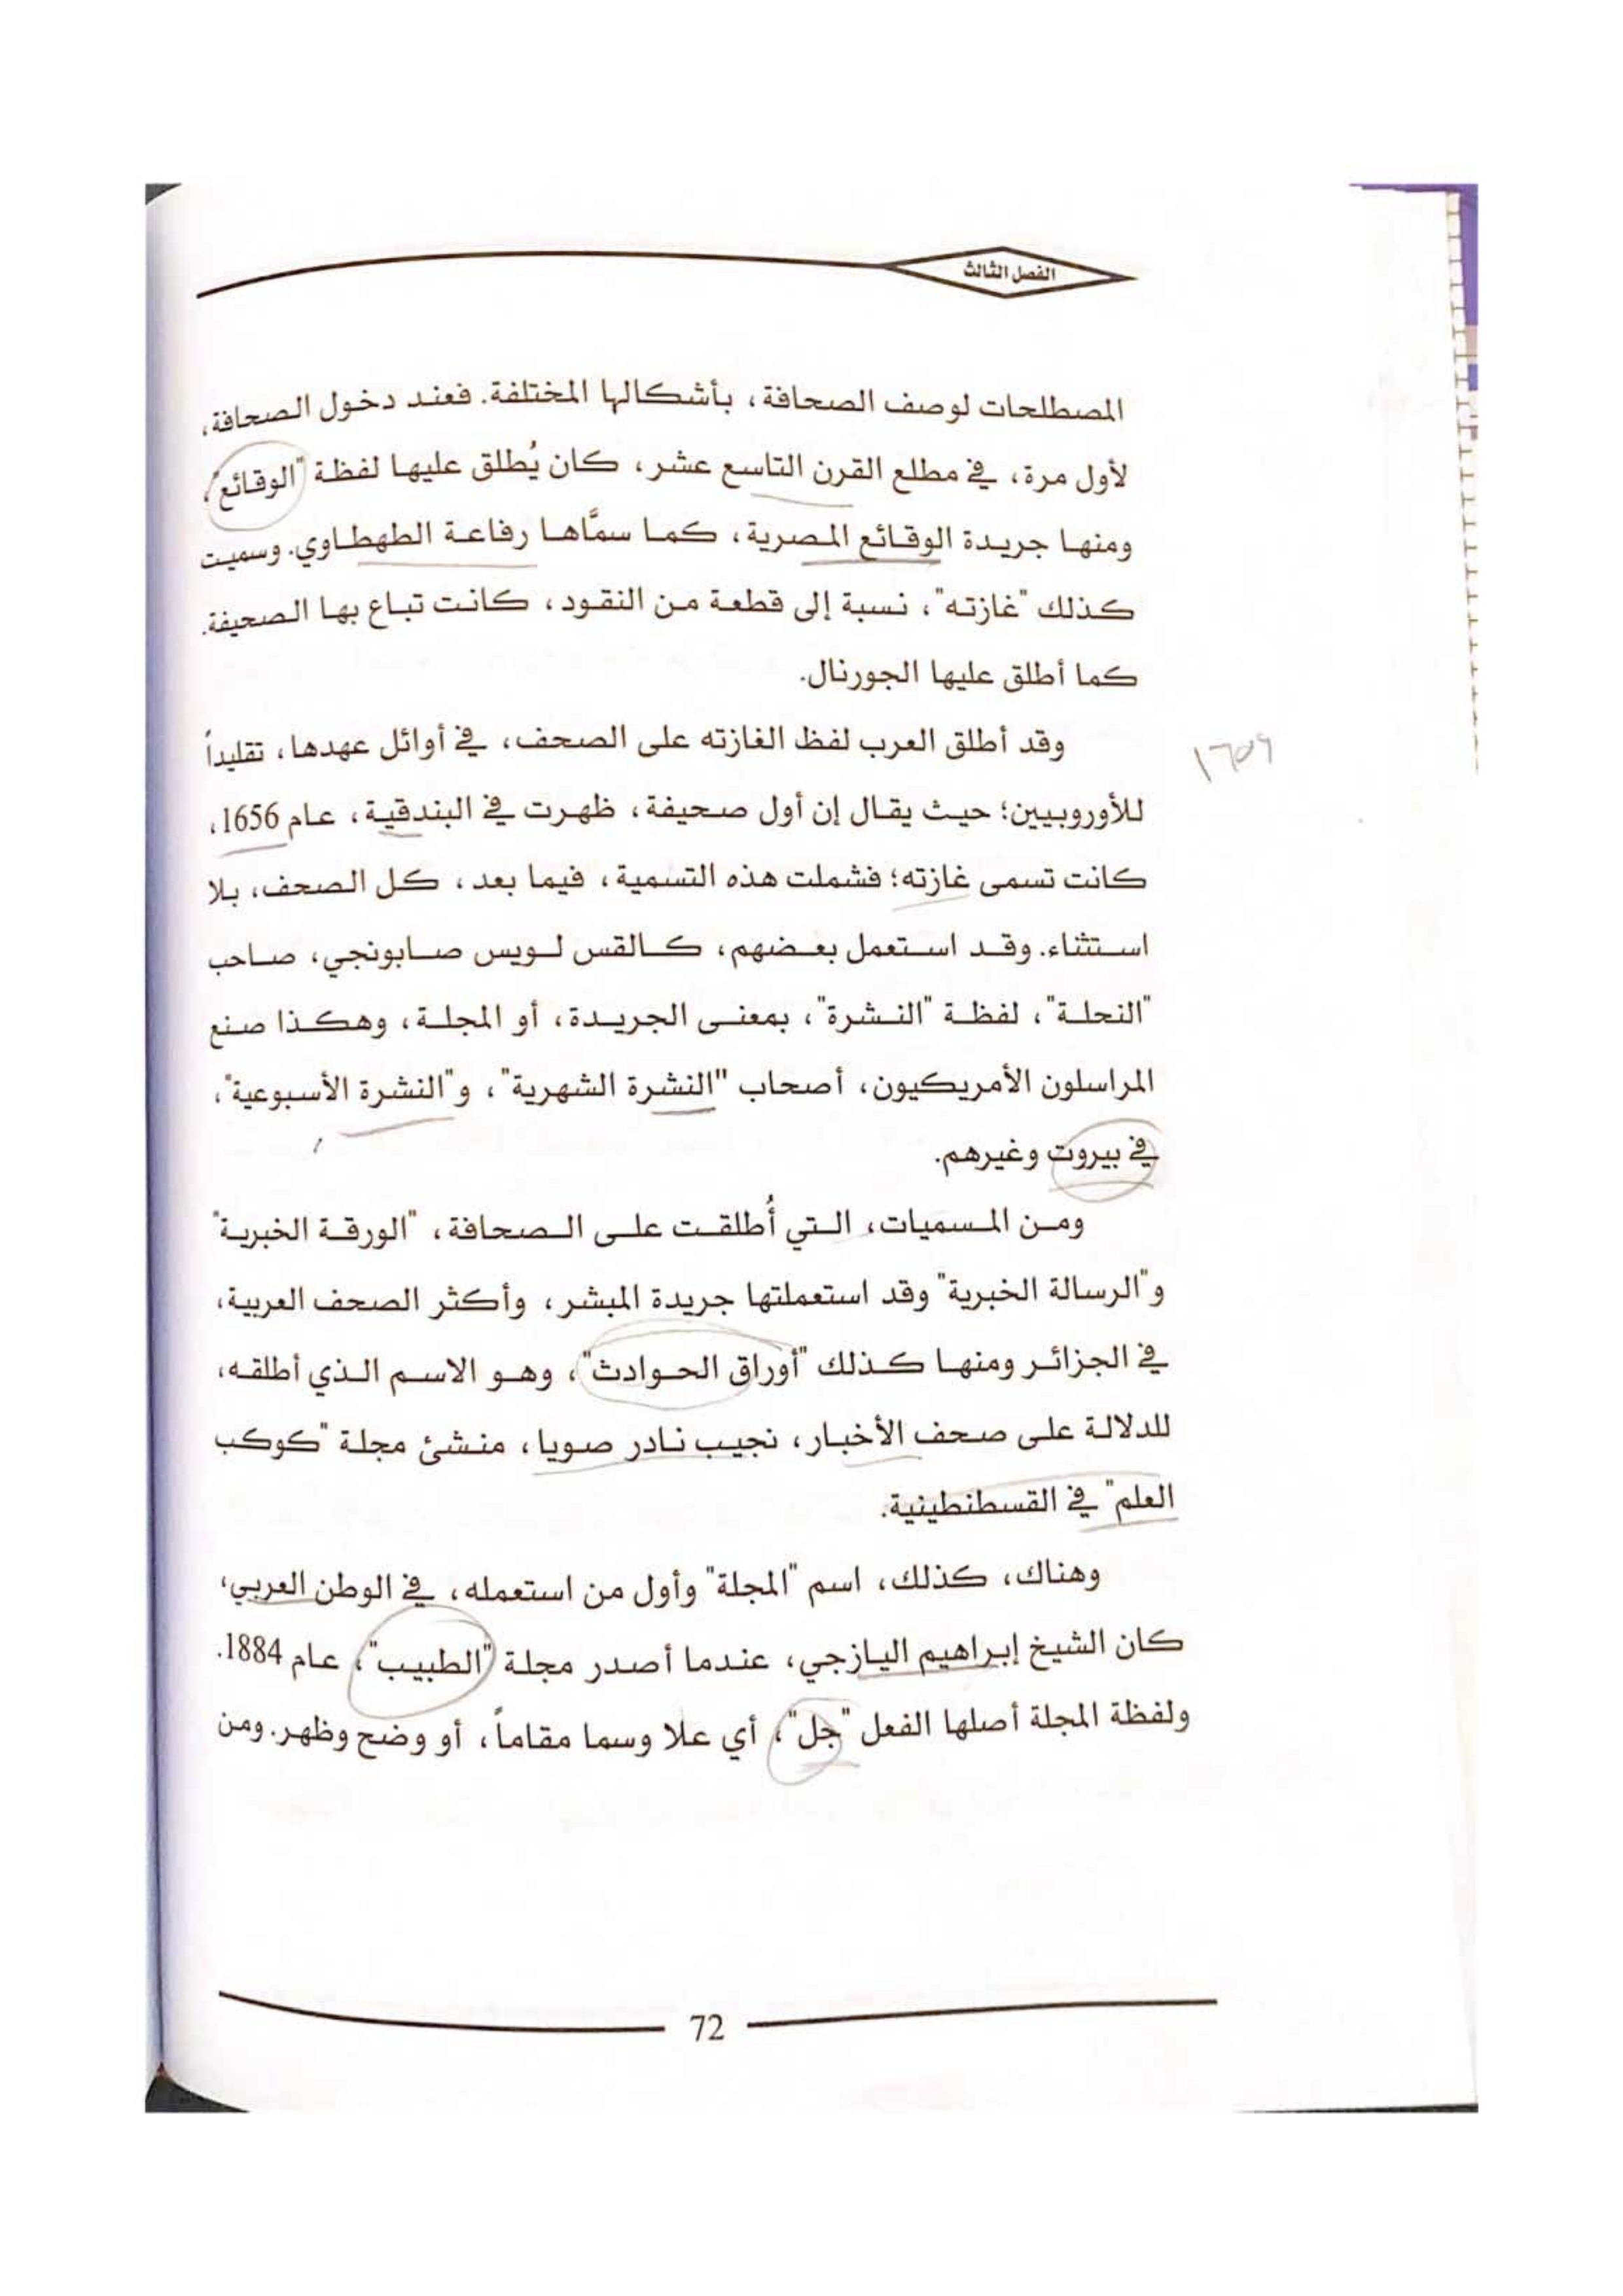 الفصل الثالث
المصطلحات لوصف الصحافة، بأشكالها المختلفة. فعند دخول الصحافة،
لأول مرة، في مطلع القرن التاسع عشر، كان يُطلق عليها لفظة "الوقائع"،
ومنها جريدة الوقائع المصرية، كما سمَّاها رفاعة الطهطاوي. وسميت
كذلك "غازته"، نسبة إلى قطعة من النقود، كانت تباع بها الصحيفة.
كما أطلق عليها الجورنال.
وقد أطلق العرب لفظ الغازته على الصحف، في أوائل عهدها، تقليداً
للأوروبيين؛ حيث يقال إن أول صحيفة، ظهرت في البندقية، عام 1656،
كانت تسمى غازته؛ فشملت هذه التسمية، فيما بعد، كل الصحف، بلا
استثناء. وقد استعمل بعضهم، كالقس لويس صابونجي، صاحب
"النحلة"، لفظة "النشرة"، بمعنى الجريدة، أو المجلة، وهكذا صنع
المراسلون الأمريكيون، أصحاب "النشرة الشهرية"، و"النشرة الأسبوعية"،
في بيروت وغيرهم.
ومن المسميات، التي أُطلقت على الصحافة، "الورقة الخبرية"
و"الرسالة الخبرية" وقد استعملتها جريدة المبشر، وأكثر الصحف العربية،
في الجزائر ومنها كذلك "أوراق الحوادث"، وهو الاسم الذي أطلقه،
للدلالة على صحف الأخبار، نجيب نادر صويا، منشئ مجلة "كوكب
العلم" في القسطنطينية.
وهناك، كذلك، اسم "المجلة" وأول من استعمله، في الوطن العربي،
كان الشيخ إبراهيم اليازجي، عندما أصدر مجلة "الطبيب"، عام 1884.
ولفظة المجلة أصلها الفعل "جل"، أي علا وسما مقاماً، أو وضح وظهر. ومن
72